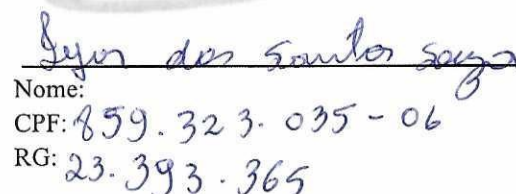 Iyor dos Santos Souza
Nome:
CPF: 859.323.035-06
RG: 23.393.365